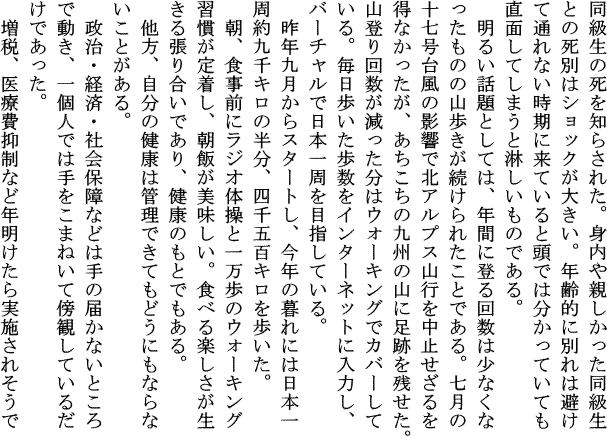 同級生の死を知らされた。身内や親しかった同級生
との死別はショックが大きい。年齢的に別れは避け
て通れない時期に来ていると頭では分かっていても
直面してしまうと淋しいものである。
　明るい話題としては、年間に登る回数は少なくな
ったものの山歩きが続けられたことである。七月の
十七号台風の影響で北アルプス山行を中止せざるを
得なかったが、あちこちの九州の山に足跡を残せた。
山登り回数が減った分はウォーキングでカバーして
いる。毎日歩いた歩数をインターネットに入力し、
バーチャルで日本一周を目指している。
　昨年九月からスタートし、今年の暮れには日本一
周約九千キロの半分、四千五百キロを歩いた。
　朝、食事前にラジオ体操と一万歩のウォーキング
習慣が定着し、朝飯が美味しい。食べる楽しさが生
きる張り合いであり、健康のもとでもある。
　他方、自分の健康は管理できてもどうにもならな
いことがある。
　政治・経済・社会保障などは手の届かないところ
で動き、一個人では手をこまねいて傍観しているだ
けであった。
　増税、医療費抑制など年明けたら実施されそうで